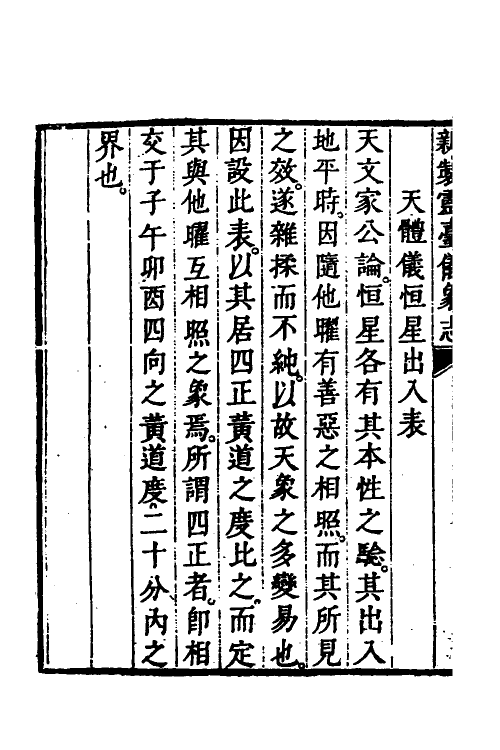 新製靈臺儀象志
天體儀恒星出入表
天文家公論。恒星各有其本性之騐。其出入
地平時。因隨他曜有善惡之相照。而其所見
之效。遂雜揉而不純。以故天象之多變易也。
因設此表。以其居四正黃道之度比之。而定
其與他曜互相照之象焉。所謂四正者。卽相
交于子午卯酉四向之黃道度。二十分、內之
界也。